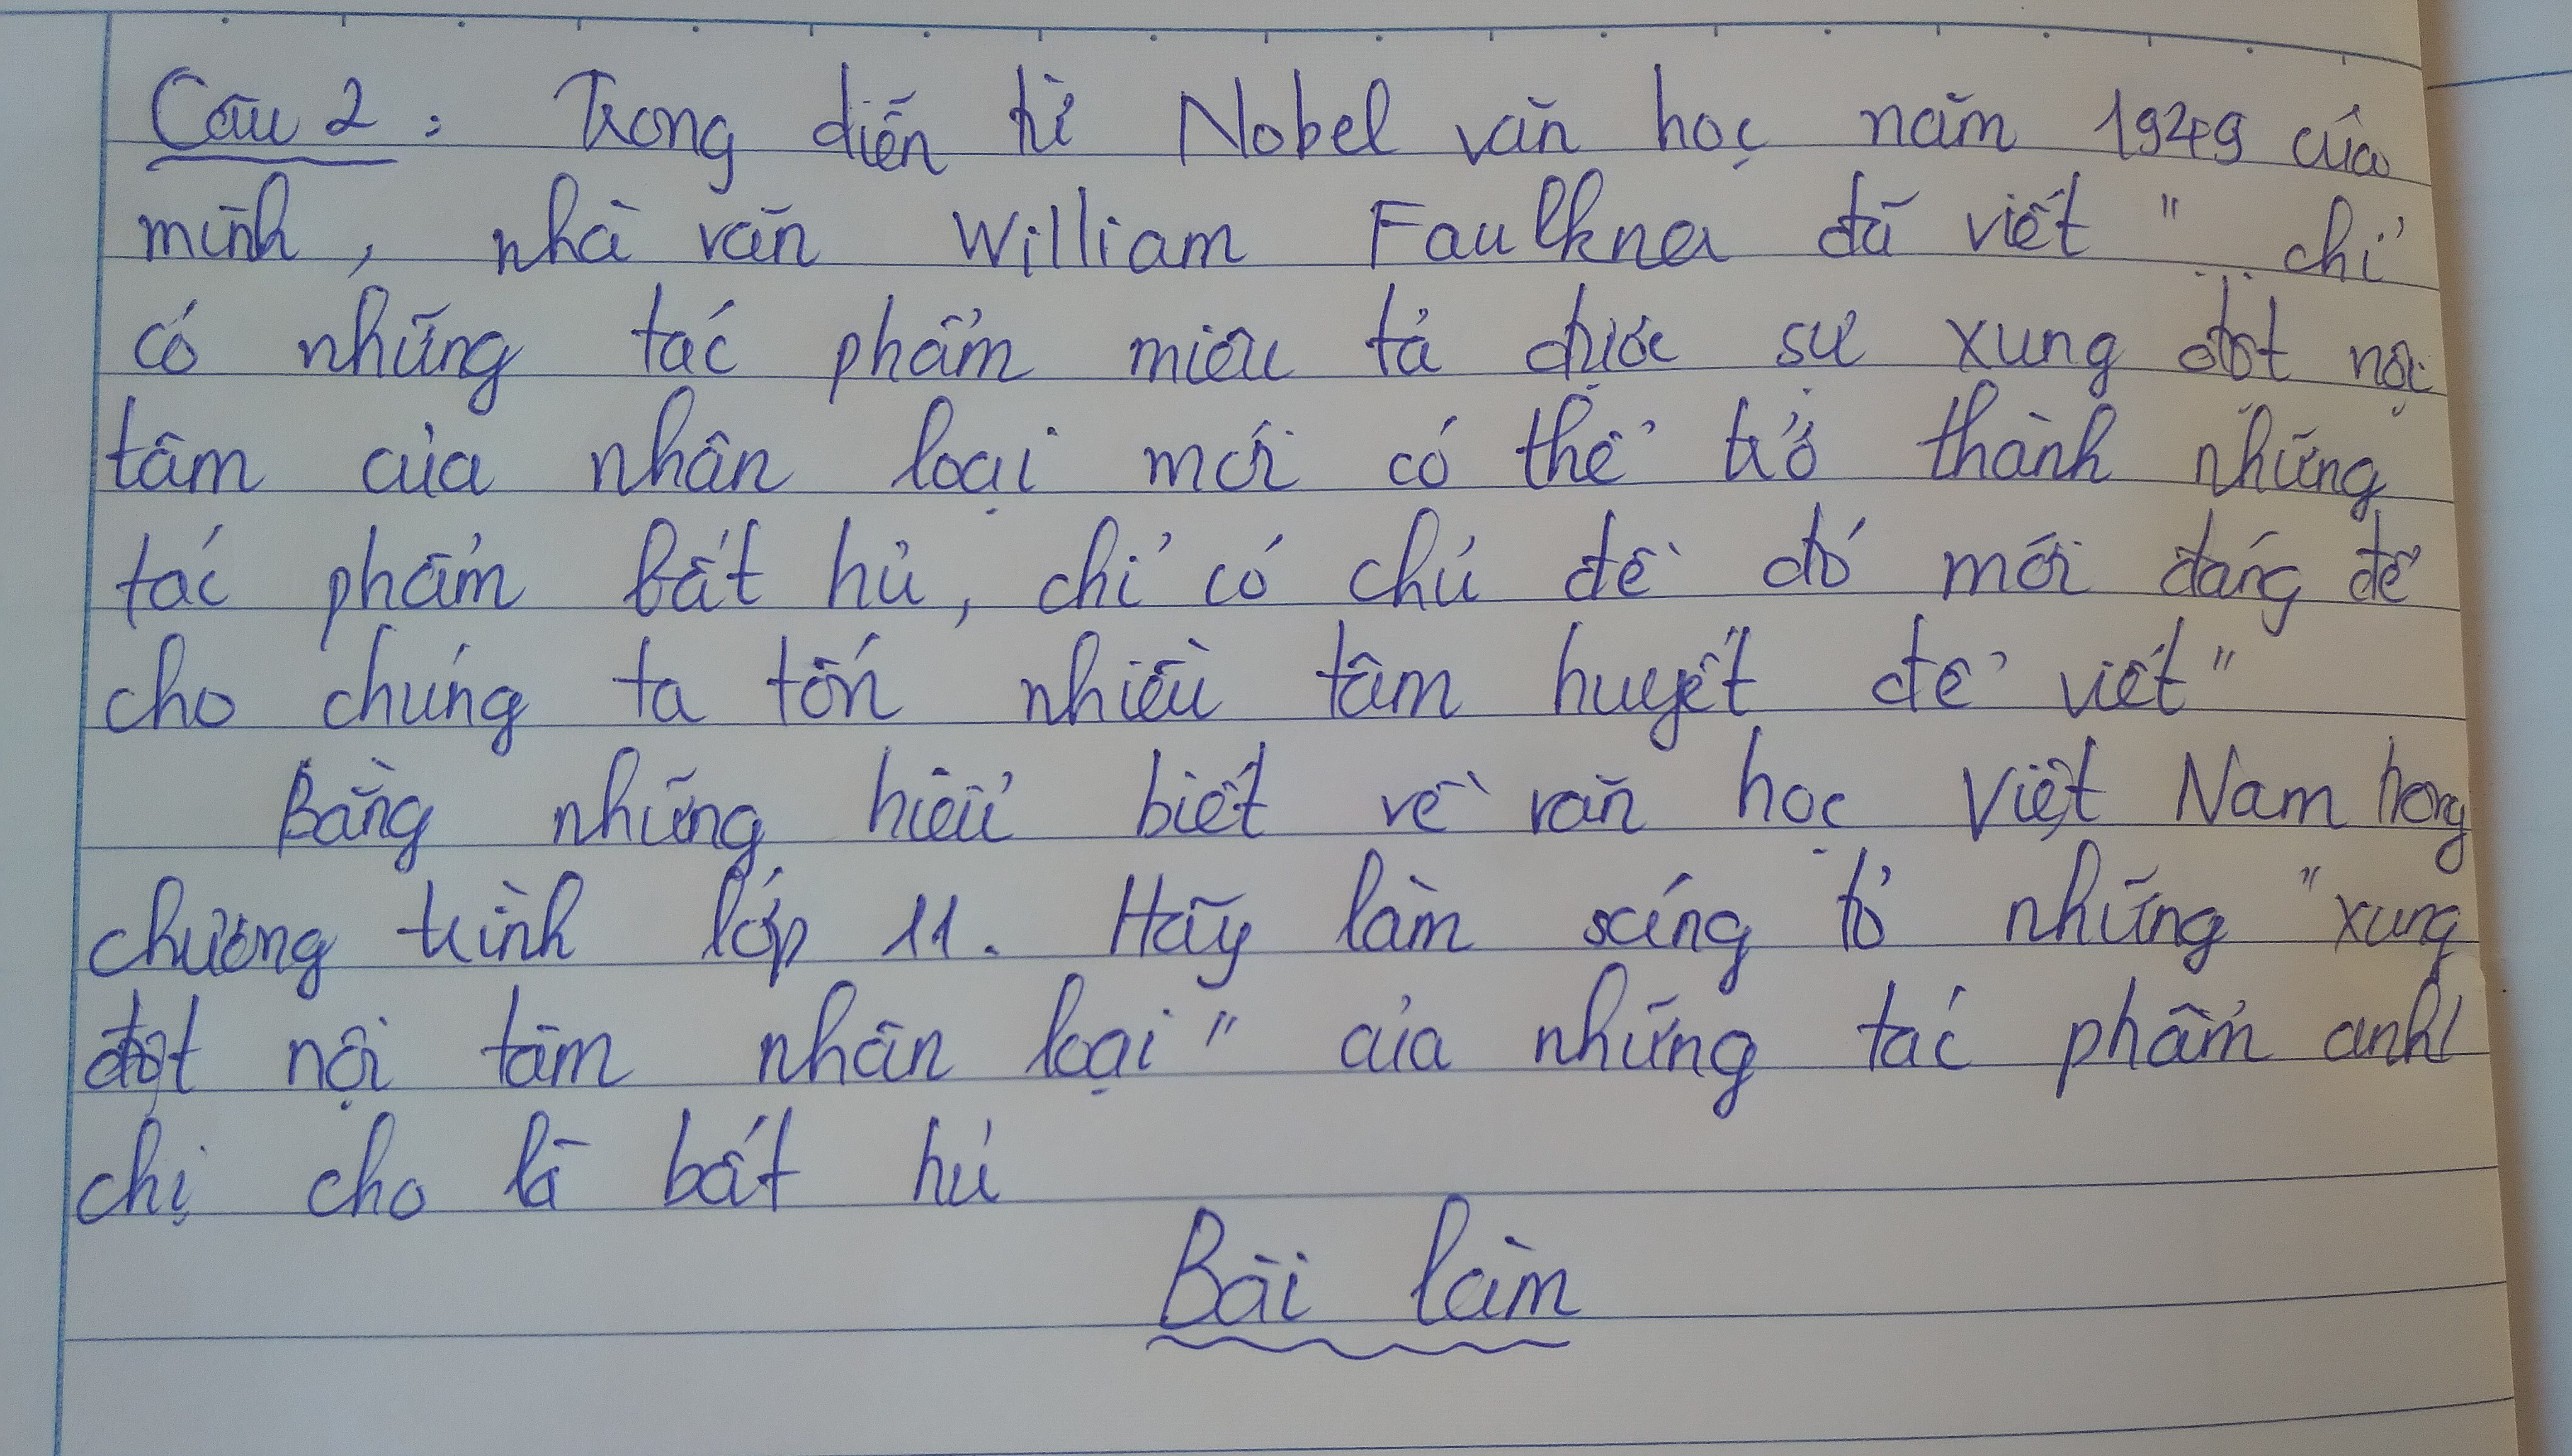 Câu 2 : Trong diễn từ Nobel văn học năm 1949 của
mình , nhà văn William Faulkner đã viết " chỉ
có những tác phẩm miêu tả được sự xung đột nội
tâm của nhân loại mới có thể trở thành những
tác phẩm bất hủ , chỉ có chủ đề đó mới đáng để
cho chúng ta tốn nhiều tâm huyết để viết "
Bằng những hiểu biết về văn học Việt Nam trong
chương trình lớp 11 . Hãy làm sáng tỏ những " xung
đột nội tâm nhân loại " của những tác phẩm anh
chị cho là bất hủ
Bài làm